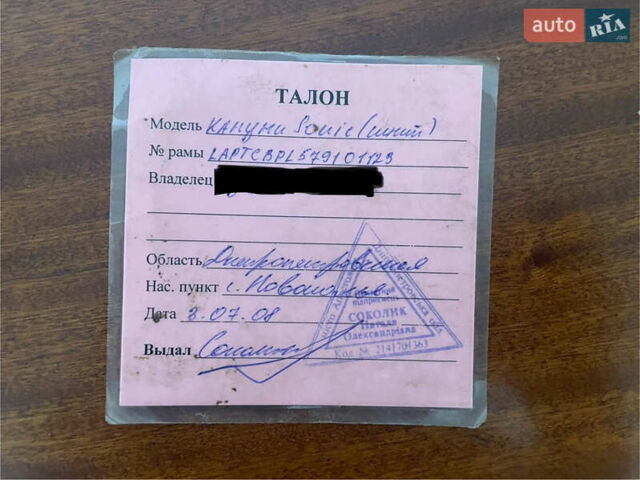 auto RIA .com
ТАЛОН
Модель Кануни Sonic (синий)
№ рамы LAPTCBPL579101123
Владелец
Область Днепропетровская
Нас. пункт с.
Дата 3.07.08
Выдал
СОКОЛИК
Натали
Олександрівна
Код № 2141701363